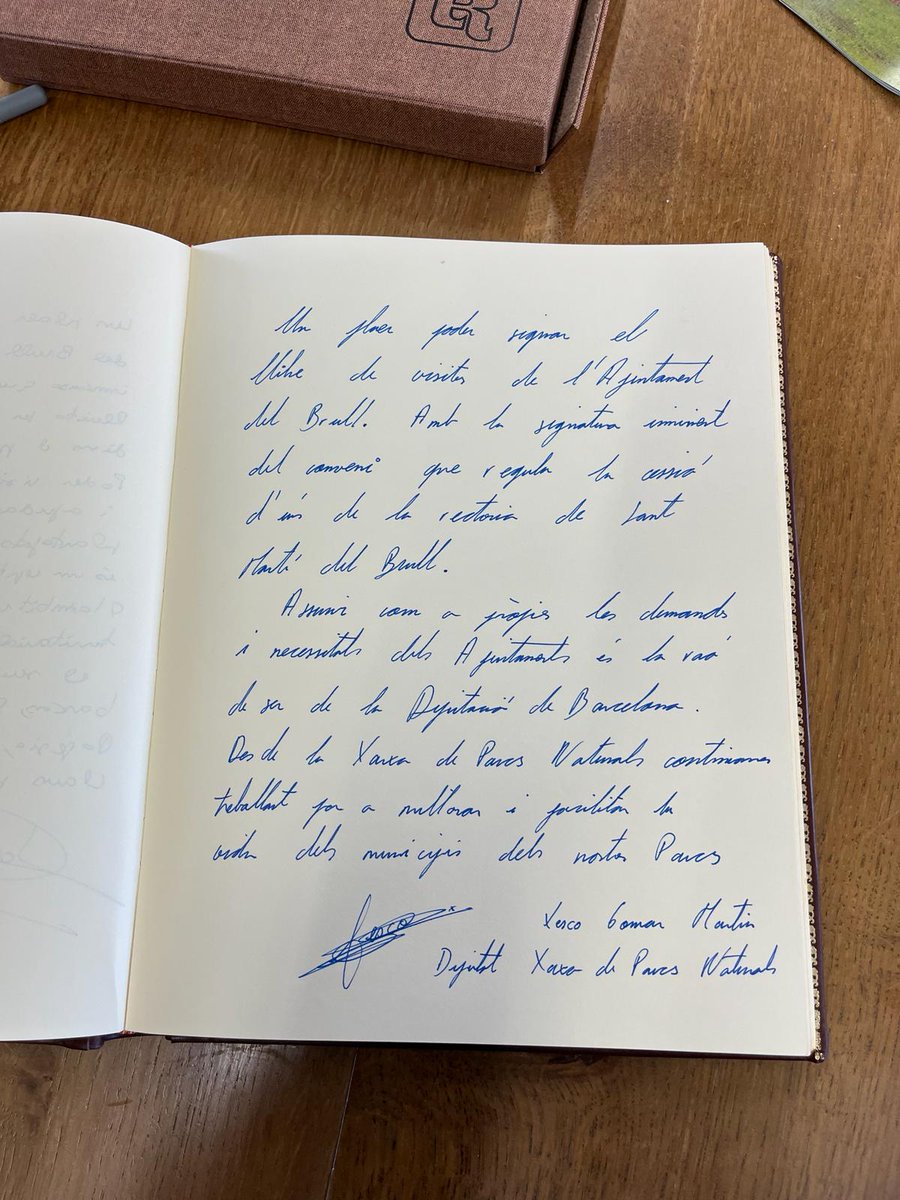 Un plaer poder signar el
llibre de visites de l'Ajuntament
del Brull. Amb la signatura imminent
del conveni que regula la cessió
d'ús de la rectoria de Sant
Martí del Brull.
Assumir com a pròpies les demandes
i necessitats dels Ajuntaments és la raó
de ser de la Diputació de Barcelona.
Desde la Xarxa de Parcs Naturals continuem
treballant per a millorar i facilitar la
vida dels municipis dels nostres Parcs
Xesco Gomar Martin
Diputat Xarxa de Parcs Naturals